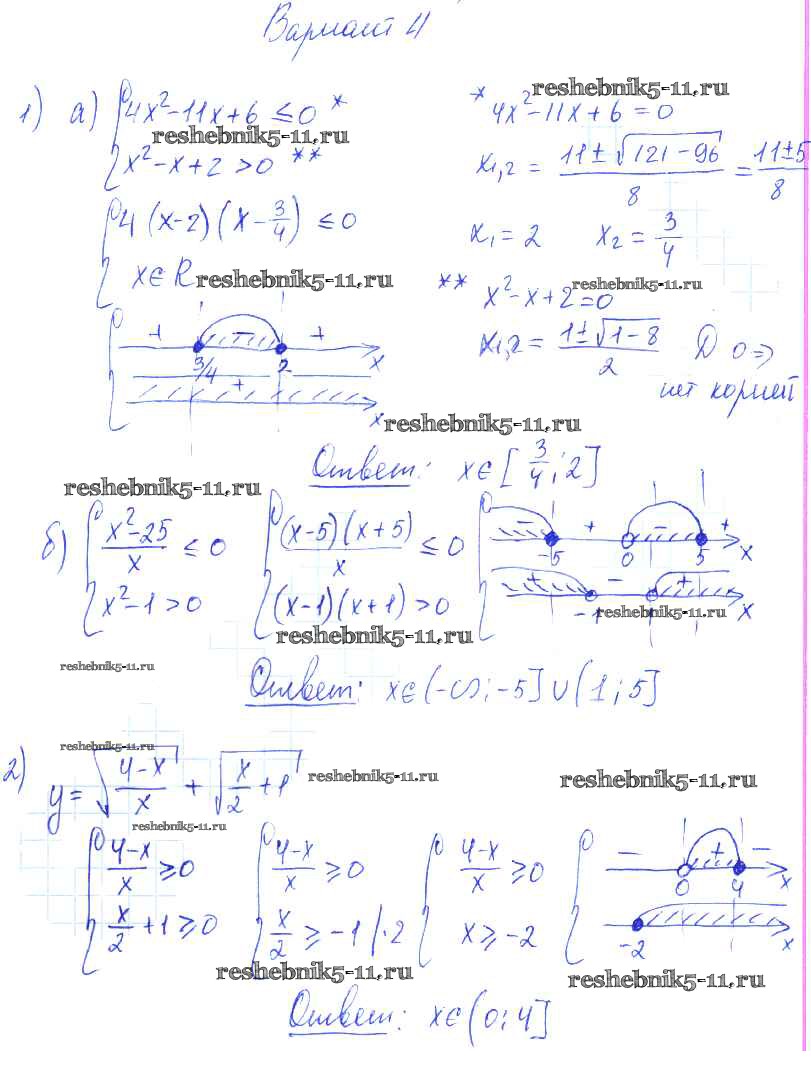 Вариант 4
1) а) { 4x²-11x+6 ≤ 0 *
reshebnik5-11.ru
x²-x+2 > 0 **
{ 4(x-2)(x-3/4) ≤ 0
x∈R
reshebnik5-11.ru
+ - +
3/4 2 x
+
x
reshebnik5-11.ru
* 4x²-11x+6=0
x₁,₂ = (11±√(121-96))/8 = (11±5)/8
x₁=2 x₂=3/4
reshebnik5-11.ru
** x²-x+2=0
x₁,₂ = (1±√(1-8))/2 D 0 ⇒
нет корней
reshebnik5-11.ru
Ответ: x∈[3/4; 2]
reshebnik5-11.ru
б) { (x²-25)/x ≤ 0 { ((x-5)(x+5))/x ≤ 0
x²-1 > 0 (x-1)(x+1) > 0
- + - +
-5 0 5 x
+ - +
-1 x
reshebnik5-11.ru
reshebnik5-11.ru
reshebnik5-11.ru
Ответ: x∈(-∞; -5]∪(1; 5]
reshebnik5-11.ru
2) y = √((4-x)/x) + √(x/2+1)
reshebnik5-11.ru
reshebnik5-11.ru
reshebnik5-11.ru
{ (4-x)/x ≥ 0 { (4-x)/x ≥ 0 { (4-x)/x ≥ 0
x/2+1 ≥ 0 x/2 ≥ -1 |·2 x ≥ -2
- + -
0 4 x
-2 x
reshebnik5-11.ru
reshebnik5-11.ru
Ответ: x∈(0; 4]